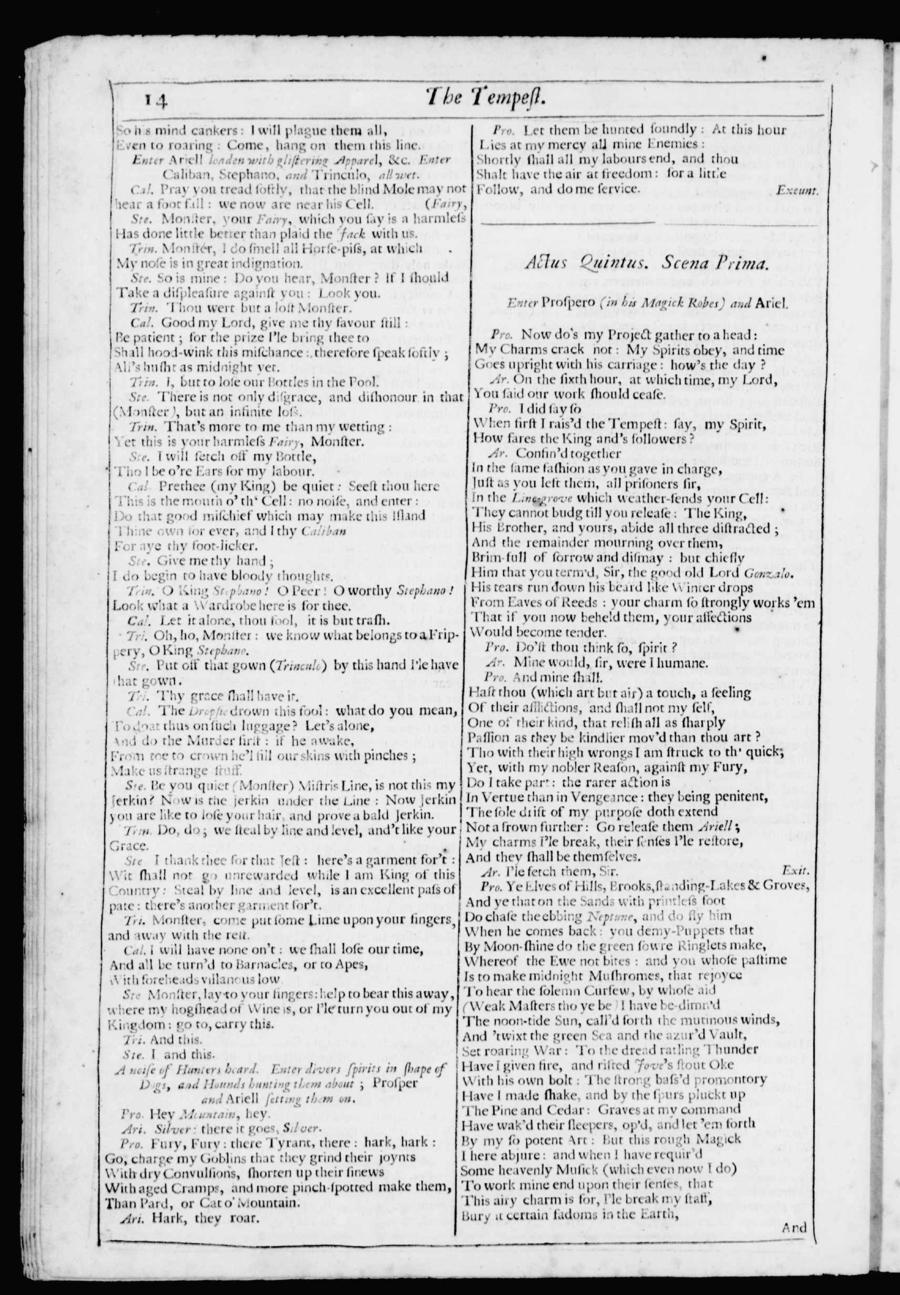 14
The Tempeſt.
So his mind cankers: I will plague them all,
Even to roaring: Come, hang on them this line.
Enter Ariell loaden with gliſtering Apparel, &c. Enter
Caliban, Stephano, and Trinculo, all wet.
Cal. Pray you tread ſoftly, that the blind Mole may not
hear a foot fall: we now are near his Cell. (Fairy,
Ste. Monſter, your Fairy, which you ſay is a harmleſs
Has done little better than plaid the Jack with us.
Trin. Monſter, I do ſmell all Horſe-piſs, at which
My noſe is in great indignation.
Ste. So is mine: Do you hear, Monſter? If I ſhould
Take a diſpleaſure againſt you: Look you.
Trin. Thou wert but a loſt Monſter.
Cal. Good my Lord, give me thy favour ſtill:
Be patient; for the prize I'le bring thee to
Shall hood-wink this miſchance: therefore ſpeak ſoftly;
All's huſht as midnight yet.
Trin. I, but to loſe our Bottles in the Pool.
Ste. There is not only diſgrace, and diſhonour in that
(Monſter), but an infinite loſs.
Trin. That's more to me than my wetting:
Yet this is your harmleſs Fairy, Monſter.
Ste. I will fetch off my Bottle,
Tho I be o're Ears for my labour.
Cal Prethee (my King) be quiet: Seeſt thou here
This is the mouth o' th' Cell: no noiſe, and enter:
Do that good miſchief which may make this Iſland
Thine own for ever, and I thy Caliban
For aye thy foot-licker.
Ste. Give me thy hand;
I do begin to have bloody thoughts.
Trin. O King Stephano! O Peer! O worthy Stephano!
Look what a Wardrobe here is for thee.
Cal. Let it alone, thou fool, it is but traſh.
Tri. Oh, ho, Monſter: we know what belongs to a Frip-
pery, O King Stephano.
Ste. Put off that gown (Trinculo) by this hand I'le have
that gown.
Tri. Thy grace ſhall have it.
Cal. The Dropſie drown this fool: what do you mean,
To doat thus on ſuch luggage? Let's alone,
And do the Murder firſt: if he awake,
From toe to crown he'l fill our skins with pinches;
Make us ſtrange ſtuff.
Ste. Be you quiet (Monſter) Miſtris Line, is not this my
Jerkin? Now is the jerkin under the Line: Now Jerkin
you are like to loſe your hair, and prove a bald Jerkin.
Trin. Do, do; we ſteal by line and level, and't like your
Grace.
Ste I thank thee for that Jeſt: here's a garment for't:
Wit ſhall not go unrewarded while I am King of this
Country: Steal by line and level, is an excellent paſs of
pate: there's another garment for't.
Tri. Monſter, come put ſome Lime upon your fingers,
and away with the reſt.
Cal. I will have none on't: we ſhall loſe our time,
And all be turn'd to Barnacles, or to Apes,
With foreheads villanous low
Ste Monſter, lay-to your fingers: help to bear this away,
where my hogſhead of Wine is, or I'le turn you out of my
Kingdom: go to, carry this.
Tri. And this.
Ste. I and this.
A noiſe of Hunters heard. Enter divers ſpirits in ſhape of
Dogs, and Hounds hunting them about; Proſper
and Ariell ſetting them on.
Pro. Hey Mountain, hey.
Ari. Silver: there it goes, Silver.
Pro. Fury, Fury: there Tyrant, there: hark, hark:
Go, charge my Goblins that they grind their joynts
With dry Convulſions, ſhorten up their ſinews
With aged Cramps, and more pinch-ſpotted make them,
Than Pard, or Cat o' Mountain.
Ari. Hark, they roar.
Pro. Let them be hunted ſoundly: At this hour
Lies at my mercy all mine Enemies:
Shortly ſhall all my labours end, and thou
Shalt have the air at freedom: for a little
Follow, and do me ſervice. Exeunt.
Actus Quintus. Scena Prima.
Enter Proſpero (in his Magick Robes) and Ariel.
Pro. Now do's my Project gather to a head:
My Charms crack not: My Spirits obey, and time
Goes upright with his carriage: how's the day?
Ar. On the ſixth hour, at which time, my Lord,
You ſaid our work ſhould ceaſe.
Pro. I did ſay ſo
When firſt I rais'd the Tempeſt: ſay, my Spirit,
How fares the King and's followers?
Ar. Confin'd together
In the ſame faſhion as you gave in charge,
Juſt as you left them, all priſoners ſir,
In the Linegrove which weather-fends your Cell:
They cannot budg till you releaſe: The King,
His Brother, and yours, abide all three diſtracted;
And the remainder mourning over them,
Brim-full of ſorrow and diſmay: but chiefly
Him that you term'd, Sir, the good old Lord Gonzalo.
His tears run down his beard like Winter drops
From Eaves of Reeds: your charm ſo ſtrongly works 'em
That if you now beheld them, your affections
Would become tender.
Pro. Do'ſt thou think ſo, ſpirit?
Ar. Mine would, ſir, were I humane.
Pro. And mine ſhall.
Haſt thou (which art but air) a touch, a feeling
Of their afflictions, and ſhall not my ſelf,
One of their kind, that reliſh all as ſharply
Paſſion as they be kindlier mov'd than thou art?
Tho with their high wrongs I am ſtruck to th' quick;
Yet, with my nobler Reaſon, againſt my Fury,
Do I take part: the rarer action is
In Vertue than in Vengeance: they being penitent,
The ſole drift of my purpoſe doth extend
Not a frown further: Go releaſe them Ariell;
My charms I'le break, their ſenſes I'le reſtore,
And they ſhall be themſelves.
Ar. I'le fetch them, Sir. Exit.
Pro. Ye Elves of Hills, Brooks, ſtanding-Lakes & Groves,
And ye that on the Sands with printleſs foot
Do chaſe the ebbing Neptune, and do fly him
When he comes back: you demy-Puppets that
By Moon-ſhine do the green ſowre Ringlets make,
Whereof the Ewe not bites: and you whoſe paſtime
Is to make midnight Muſhromes, that rejoyce
To hear the ſolemn Curfew, by whoſe aid
(Weak Maſters tho ye be) I have be-dimm'd
The noon-tide Sun, call'd forth the mutinous winds,
And 'twixt the green Sea and the azur'd Vault,
Set roaring War: To the dread ratling Thunder
Have I given fire, and rifted Jove's ſtout Oke
With his own bolt: The ſtrong baſs'd promontory
Have I made ſhake, and by the ſpurs pluckt up
The Pine and Cedar: Graves at my command
Have wak'd their ſleepers, op'd, and let 'em forth
By my ſo potent Art: But this rough Magick
I here abjure: and when I have requir'd
Some heavenly Muſick (which even now I do)
To work mine end upon their ſenſes, that
This airy charm is for, I'le break my ſtaff,
Bury it certain fadoms in the Earth,
And